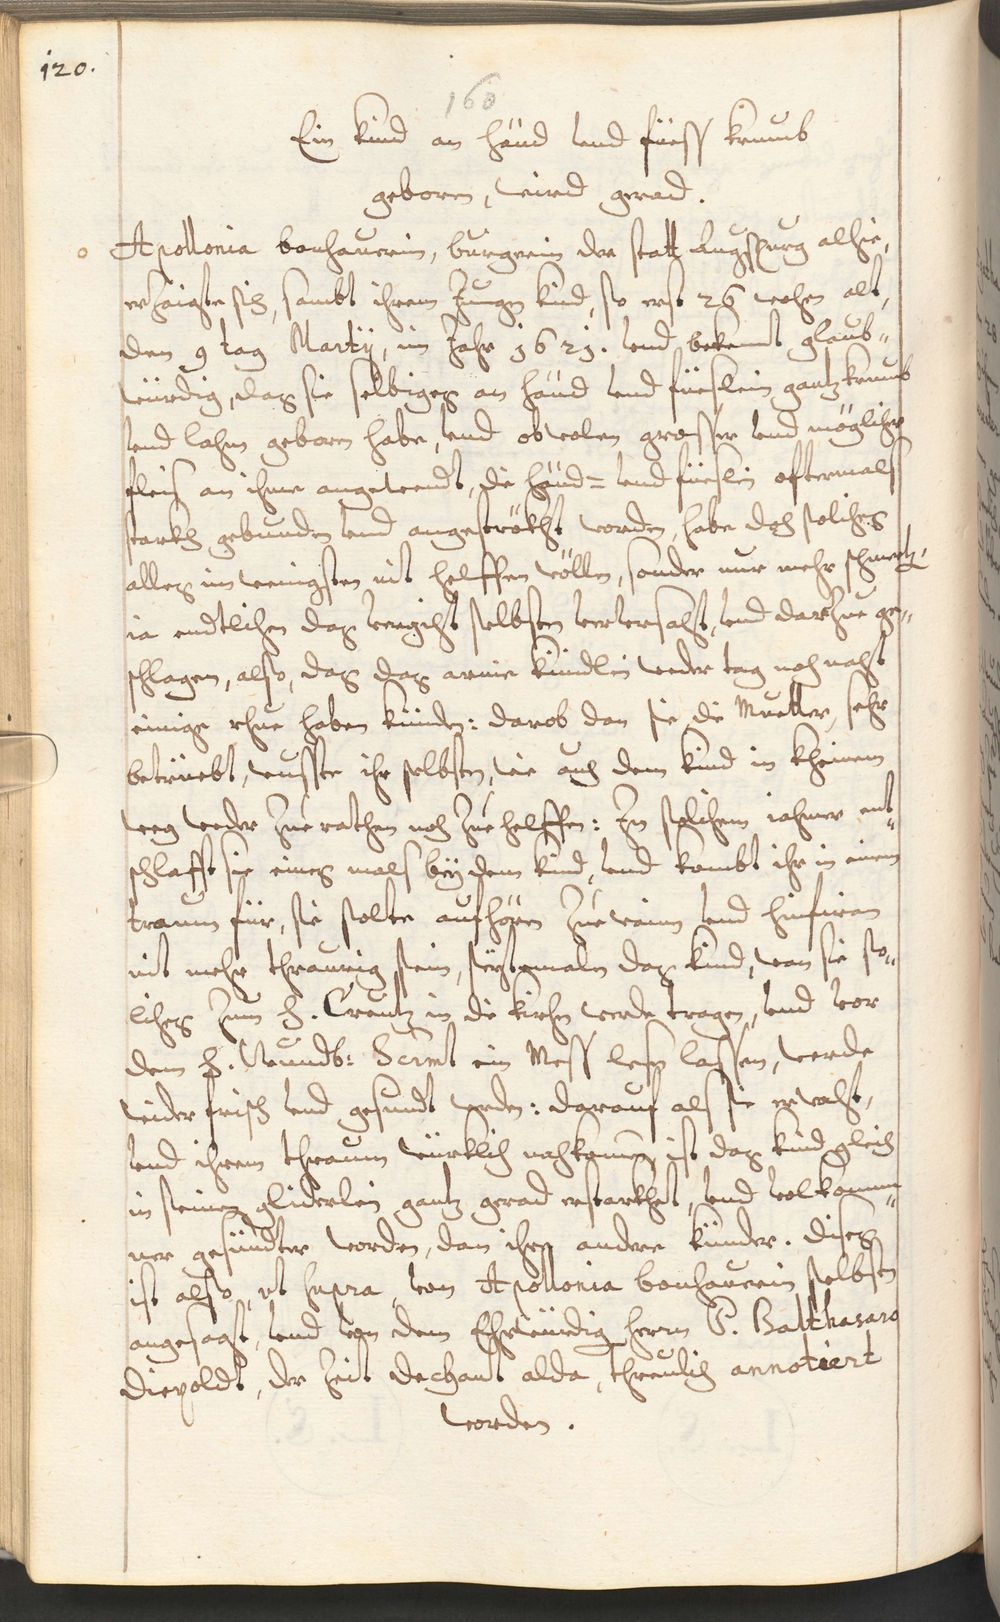 120.
160
Ein kind an händ vnd füess krumb
geboren, wird gerad.
Apollonia bonhauerin, burgerin der statt Augspurg alhie,
erzaigte sich, sambt ihrem Jungen kind, so erst 26 wochen alt,
den 9 tag Martij, im Jahr 1621. vnd bekennt glaub=
würdig, das sie selbiges an händ vnd füeslein gantz krumb
vnd lahm geboren habe, vnd obwolen grosser vnd möglicher
fleis an ihme angewendt, die händ= vnd füeslin oftermals
starckh gebunden vnd angeströckht worden, habe doch solches
alles im wenigsten nit helffen wöllen, sonder nur mehr schmertz,
ia endtlichen das vergicht selbsten vervrsacht, vnd darzue ge=
schlagen, also, das das arme kindlin weder tag noch nacht
einige rhue haben künden: darob dan sie die Muetter, sehr
betrüebt, wusste ihr selbsten, wie auch dem kind in kheinem
weg weder zue rathen noch zue helffen: In solichem iahmer ent=
schlafft sie eines mals bey dem kind, vnd kombt ihr in einem
traum für, sie solte aufhören zue wainen vnd hinfüran
nit mehr thraurig sein, seytemaln das kind, wan sie so=
liches zum H. Creutz in die kirchen werde tragen, vnd vor
dem H. Wundb: Sacrament ein Mess lesen lassen, werde
wider frisch vnd gesundt werden: darauf als sie erwacht,
vnd ihrem thraum würklich nachkommen, ist das kind gleich
in seinen gliderlein gantz gerad erstarkhet, vnd volkomm=
ner gesündter worden, dan ihre andere kinder. Dises
ist also, vt supra, von Apollonia bonhauerin selbsten
angesagt, vnd von dem Ehrwürdig herrn P. Balthasaro
Diepoldt, der Zeit dechant alda, threulich annotiert
worden.